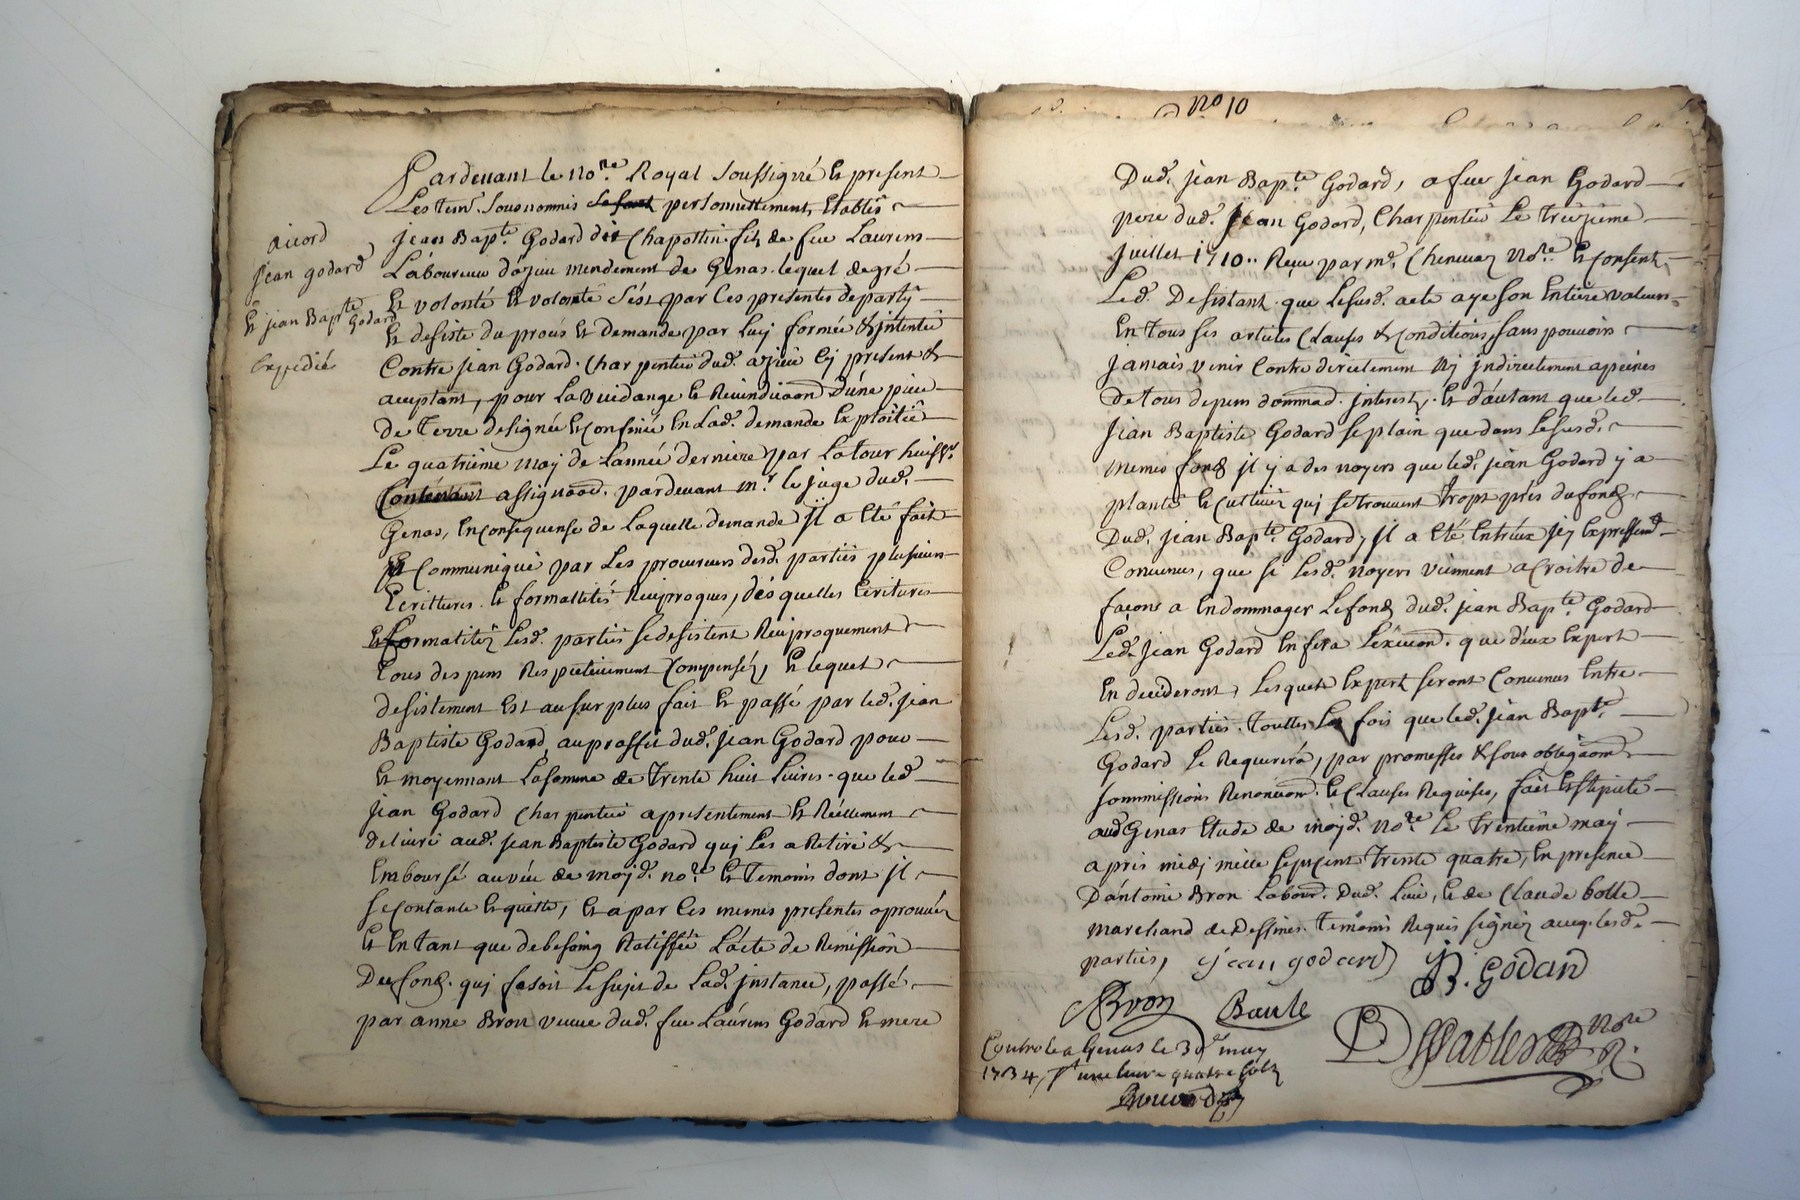 acord
jean godard
et jean Bapte Godard
Expedié
Pardevant le nore Royal soussigné et present
Les tems. sousnommés personnellement Etablis
jean Bapte Godard dit Chapottin fils de feu Laurens
Laboureur d'azieu mendement de Genas lequel de gré
Et volonté Et volonté s'est par ces presentes departy
Et desiste du procés et demande par luy formée & jntentée
Contre jean Godard Charpentier dud. azieu cy present &
aceptant, pour la vuidange et Revindicaon d'une piece
de Terre designée et confinée En lad. demande Exploitée
Le quatrième may de l'année derniere par Latour huissr.
Contenant assignaon. pardevant mr. le juge dud.
Genas, En consequense de laquelle demande jl a Eté fait
Et Communiqué par les procureurs desd. parties plusieurs
Ecrittures et formallités Reciproques, des quelles Ecritures
Et formalités lesd. parties se desistent Reciproquement
tous depens Respectivement Compensés, Et lequel
desistement Est au surplus fait Et passé par led. jean
Baptiste Godard au proffit dud. jean Godard pour
Et moyennant la somme de Trente huit Livres que led
jean Godard Charpentier a presentement Et Réellement
delivré aud. jean Baptiste Godard quj les a Retiré &
Emboursé au veu de moyd. nore Et Temoins dont jl
se contante Et quitte, Et a par ces memes presentes aprouvé
Et En Tant que de besoing Ratiffié L'acte de Remission
Du fond. quj fesoit le sujet de lad. jnstance, passé
par anne Bron veuve dud. feu Laurens Godard Et mere
No 10
Dud. jean Bapte Godard, a feu jean Godard
pere dud. jean Godard, Charpentier Le Treizieme
Juillet 1710.. Reçu par me. Nore. Et Consent
Led. Desistant que le susd. acte aye son Entiere valeur
En tous ses articles Clauses & Conditions, sans pouvoir
jamais venir Contre directement Ny jndirectement a peines
De tous depens dommad. jnterests, Et d'autant que led.
jean Baptiste Godard se plain que dans le susd.
memes fonds jl y a des noyers que led. jean Godard y a
planté Et cultivés quj se trouvent Tropt prés du fonds
Dud. jean Bapte Godard, jl a Eté Entr'eux jcy Expressemt.
Convenu, que si lesd. noyers viennent a croitre de
façons a Endommager le fonds dud. jean Bapte Godard
Led. jean Godard En fera que deux Expert
En decideront, lesquels Expert seront Convenus Entre
Lesd. parties. Touttes Les fois que led. jean Bapte.
Godard Le Requerira, par promesses & sous obligaons
sommissions Renonciaon. Et Clauses Requises, fait Et stipulé
aud Genas Etude de moyd. nore Le Trentième may
apris midj mille septcent Trente quatre, En presence
D'antoine Bron Labour. Dud. Lieu, Et de Claude bolle
marchand de Dessines Temoins Requis signés aveq lesd.
parties, jean godard JB. GODARD
Bron
Controle a Genas le 30e may
1734, une livre quatre sols